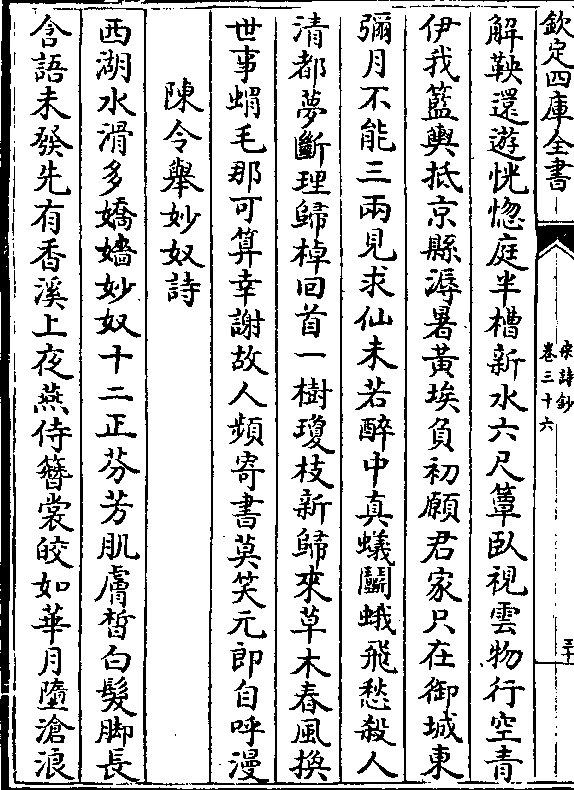 欽定四庫全書
宋詩鈔
卷三十六
三十
解鞅還遊恍惚庭半槽新水六尺簟臥視雲物行空青
伊我籃輿抵京縣溽暑黃埃負初願君家只在御城東
彌月不能三兩見求仙未若醉中真蟻鬭蛾飛愁殺人
清都夢斷理歸棹回首一樹瓊枝新歸來草木春風換
世事蝟毛那可算幸謝故人頻寄書莫笑元郎自呼漫
陳令舉妙奴詩
西湖水滑多嬌嬙妙奴十二正芬芳肌膚晳白髮脚長
含語未發先有香溪上夜燕侍簪裳皎如華月墮滄浪